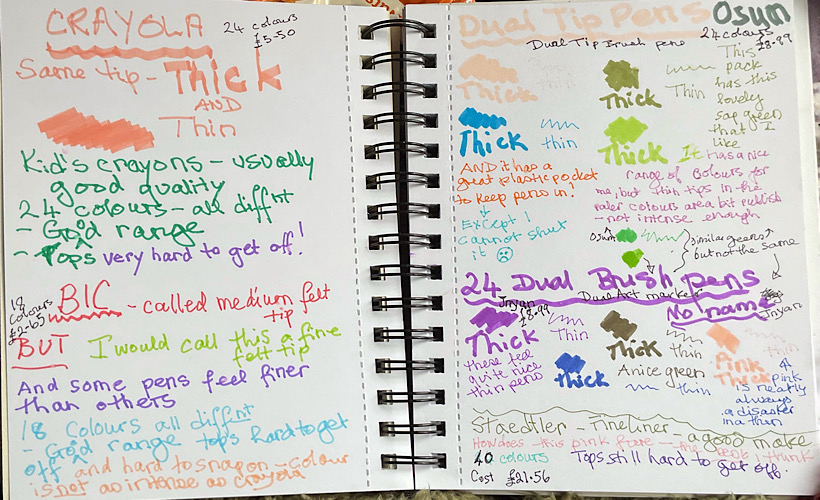 CRAYOLA
24 colours
£5.50
Same tip - Thick
AND
Thin
Kid's crayons - usually
good quality
24 colours - all diffnt
- Good range
- Tops very hard to get off!
18
Colours
£2.65
BIC - called medium felt
tip
BUT I would call this a fine
felt tip
And some pens feel finer
than others
18 Colours all diffnt
- Good range tops hard to get
off and hard to snap on - colour
is not as intense as crayola
Dual Tip Pens Osum
Dual Tip Brush pens
24 colours
£8.99
Thick
Thick
Thin
This
pack
has this
lovely
sap green
that I
like
Thick
thin
Thick
It has a nice
range of colours for
me, but thin tips in the
paler colours are a bit rubbish
- not intense enough
AND it has a
great plastic pocket
to keep pens in!
Except I
cannot shut
it
Osum
similar greens
but not the same
24 Dual Brush pens
Dual Art markers
Jnyan
£8.99
No name
Jnyan
Thick
Thin
these feel
quite nice
thin pens
Thick
thin
A nice green
Thick
thin
Pink
Thick
thin
pink
is neatly
always
a disaster
in a thin
Staedtler - Fineliner - a good make
How does this pink fare
40 colours
Tops still hard to get off.
Cost £21.56